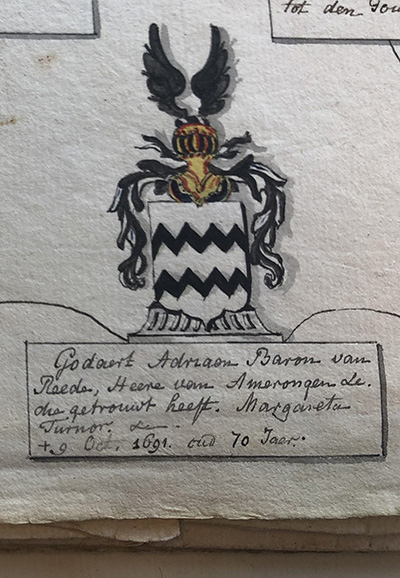 tot den
Godaert Adriaen Baron van
Reede, Heere van Amerongen &c.
die getrouwt heeft. Margareta
Turnor. &c
† 9 Oct. 1691. oud 70 Jaer.